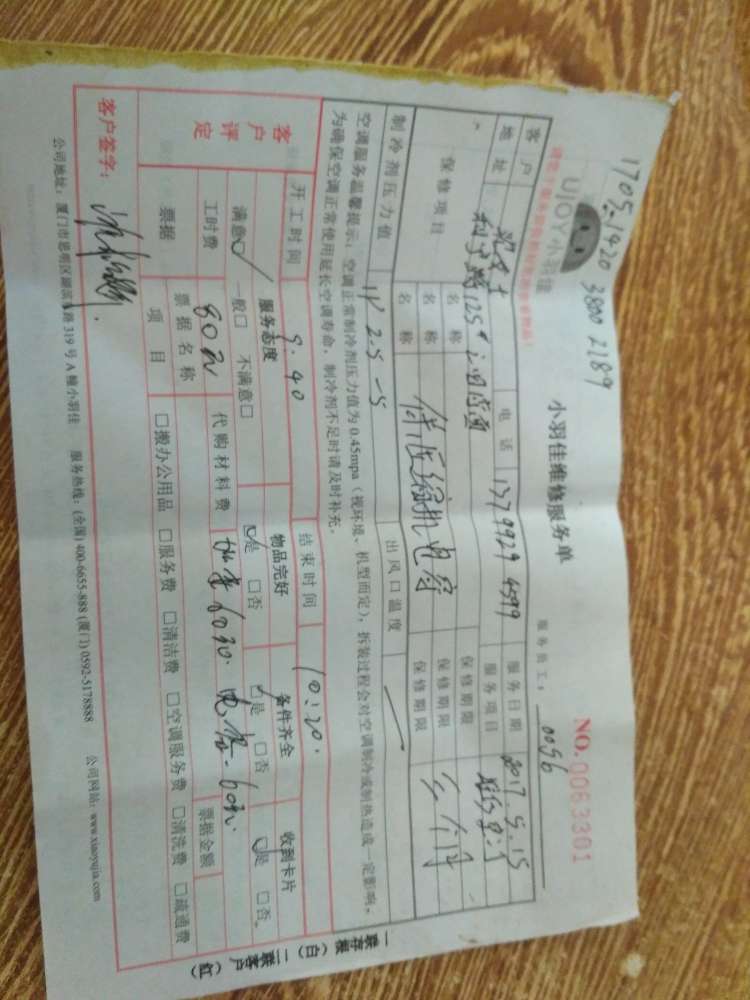 1705-1420 3800 2189
UJOY小羽佳
小羽佳维修服务单
NO.0053301
服务员工： 0056
客户 电话 13799294599 服务日期 2017.5.15
地址 125 服务项目
保修项目 名称 保修期限
名称 保压缩机电容 保修期限 三个月
制冷剂压力值 出风口温度
空调服务温馨提示：空调正常制冷剂压力值为0.45mpa（视环境、机型而定），拆装过程会对空调制冷或制热造成一定影响，
为确保空调正常使用延长空调寿命，制冷剂不足时请及时补充。
客户评定
开工时间 9:40 结束时间 10:20.
服务态度 物品完好 备件齐全 收到卡片
满意☑ 一般□ 不满意□ ☑是 □否 ☑是 □否 ☑是 □否
工时费 80元 代购材料费 加雪种60元. 电容-60元 票据金额
票据 票据名称
项目 □搬办公用品 □服务费 □清洁费 □空调服务费 □清洗费 □疏通费
客户签字：
公司地址：厦门市思明区湖滨南路319号A幢小羽佳 服务热线：(全国) 400-6655-888 (厦门) 0592-5178888 公司网站：www.xiaoyujia.com
一联存根（白）二联客户（红）